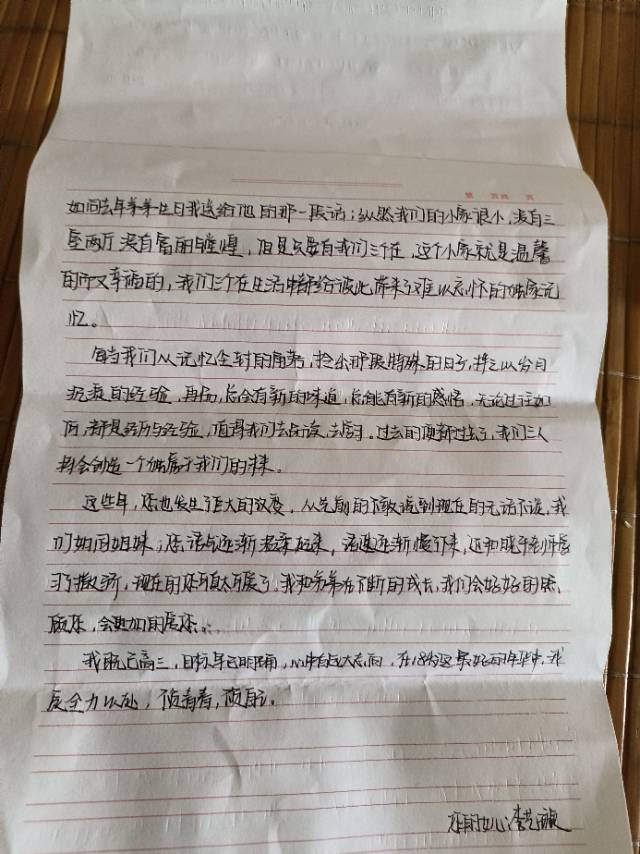 第 页共 页
如同去年弟弟生日我送给他的那一段话；纵然我们的小家很小，没有三
室两厅没有富丽堂皇，但是只要有我们三个在，这个小家就是温馨
的而又幸福的，我们三个在生活中都给彼此带来了难以忘怀的独家记
忆。
每当我们从记忆尘封的角落，拾出那段特殊的日子，掸之以岁月
沉淀的经验，再品，总会有新的味道，总能有新的感悟，无论过往如
何，都是经历与经验，值得我们去品读，去回。过去的便都过去了，我们三人
将会创造一个独属于我们的未来。
这些年，您也发生了巨大的改变，从先前的不敢说到现在的无话不谈，我
们如同姐妹；您语气逐渐温柔起来，语速逐渐慢下来，还和我平起平坐
撒娇，现在的您可真太可爱了。我和弟弟在不断的成长，我们会好好的照
顾您，会更加的爱您...
我既已高三，目标早已明确，心中自有大志向，在18岁这最好的年华中，我
定全力以赴，
您的女儿：